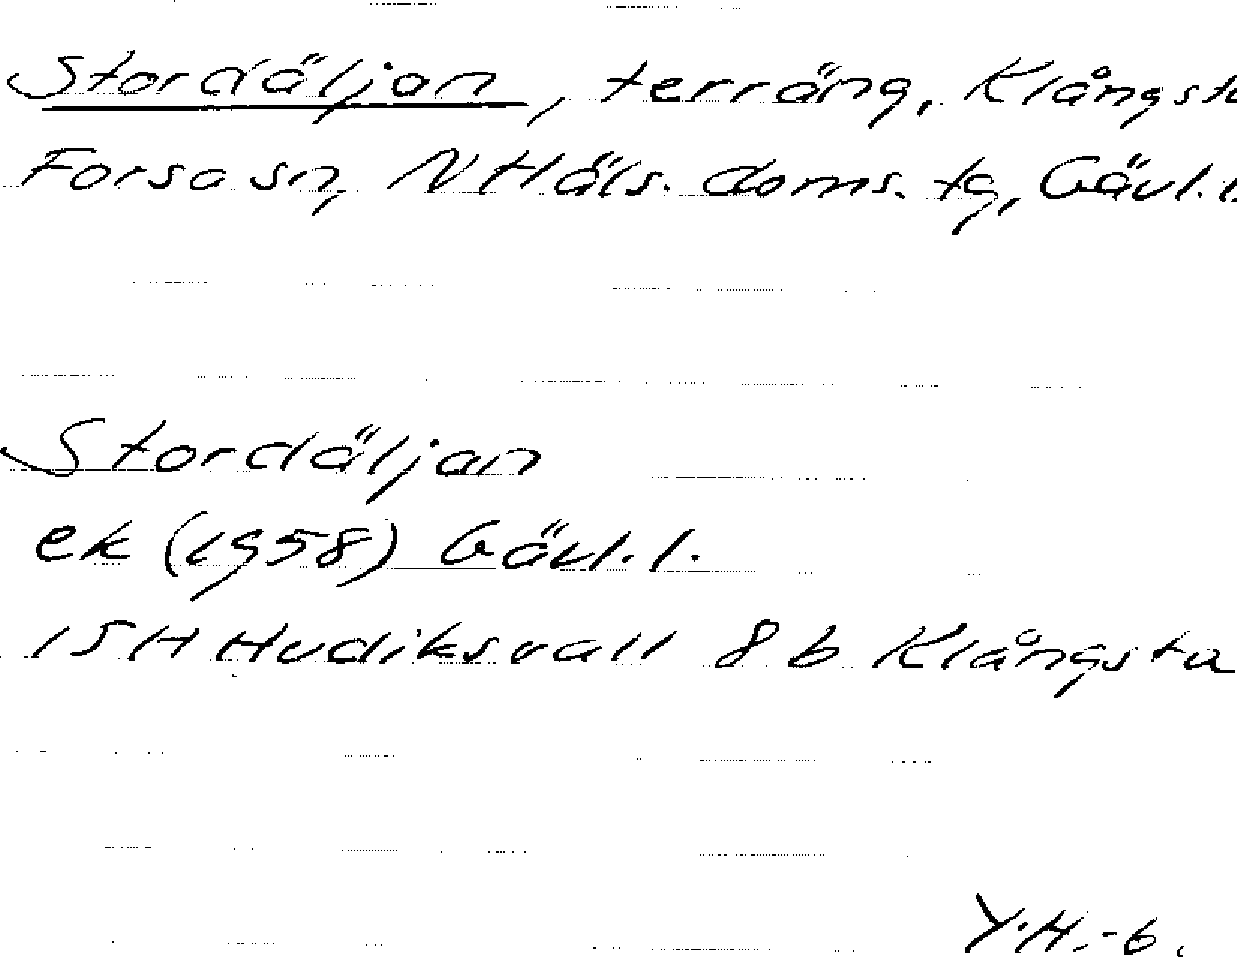 Stordäljan, terräng, Klångsta
Forsa sn, N Häls. doms. tg, Gävl. l.
Stordäljan
ek (1958) Gävl. l.
15H Hudiksvall 8b Klångsta
Y.H.-6.